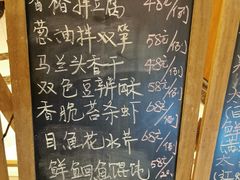 香椿拌豆腐 48元/例
葱油拌双笋 58元/例
马兰头香干 48元/例
双色豆瓣酥 58元/例
香脆苔条虾 68元/例
目鱼花水芹 68元/例
鲜鮰鱼馄饨 58元/